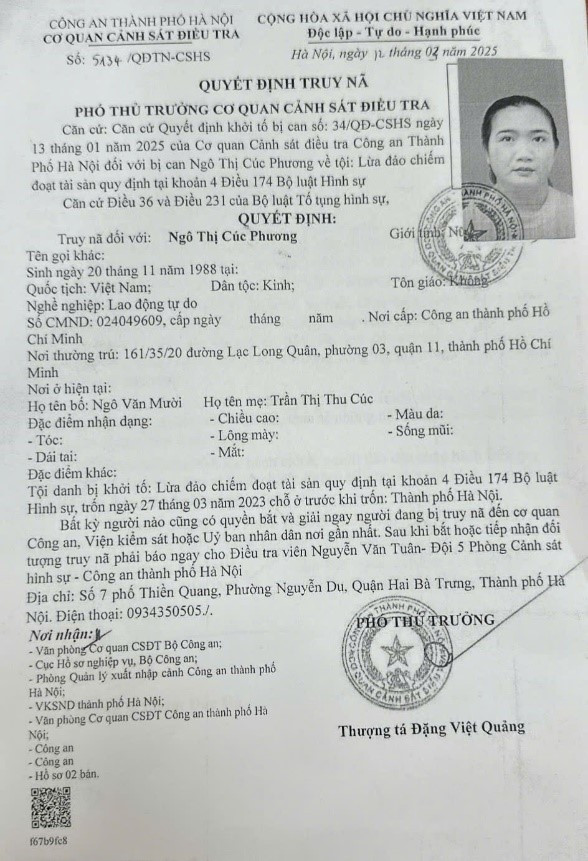 CÔNG AN THÀNH PHỐ HÀ NỘI
CƠ QUAN CẢNH SÁT ĐIỀU TRA
Số: 5134 /QĐTN-CSHS
CỘNG HÒA XÃ HỘI CHỦ NGHĨA VIỆT NAM
Độc lập - Tự do - Hạnh phúc
Hà Nội, ngày 12 tháng 02 năm 2025
QUYẾT ĐỊNH TRUY NÃ
PHÓ THỦ TRƯỞNG CƠ QUAN CẢNH SÁT ĐIỀU TRA
Căn cứ: Căn cứ Quyết định khởi tố bị can số: 34/QĐ-CSHS ngày
13 tháng 01 năm 2025 của Cơ quan Cảnh sát điều tra Công an Thành
Phố Hà Nội đối với bị can Ngô Thị Cúc Phương về tội: Lừa đảo chiếm
đoạt tài sản quy định tại khoản 4 Điều 174 Bộ luật Hình sự
Căn cứ Điều 36 và Điều 231 của Bộ luật Tố tụng hình sự,
QUYẾT ĐỊNH:
Truy nã đối với: Ngô Thị Cúc Phương Giới tính: Nữ
Tên gọi khác:
Sinh ngày 20 tháng 11 năm 1988 tại:
Quốc tịch: Việt Nam; Dân tộc: Kinh; Tôn giáo: Không
Nghề nghiệp: Lao động tự do
Số CMND: 024049609, cấp ngày tháng năm . Nơi cấp: Công an thành phố Hồ
Chí Minh
Nơi thường trú: 161/35/20 đường Lạc Long Quân, phường 03, quận 11, thành phố Hồ Chí
Minh
Nơi ở hiện tại:
Họ tên bố: Ngô Văn Mười Họ tên mẹ: Trần Thị Thu Cúc
Đặc điểm nhận dạng: - Chiều cao: - Màu da:
- Tóc: - Lông mày: - Sống mũi:
- Dái tai: - Mắt:
Đặc điểm khác:
Tội danh bị khởi tố: Lừa đảo chiếm đoạt tài sản quy định tại khoản 4 Điều 174 Bộ luật
Hình sự, trốn ngày 27 tháng 03 năm 2023 chỗ ở trước khi trốn: Thành phố Hà Nội.
Bất kỳ người nào cũng có quyền bắt và giải ngay người đang bị truy nã đến cơ quan
Công an, Viện kiểm sát hoặc Uỷ ban nhân dân nơi gần nhất. Sau khi bắt hoặc tiếp nhận đối
tượng truy nã phải báo ngay cho Điều tra viên Nguyễn Văn Tuân- Đội 5 Phòng Cảnh sát
hình sự - Công an thành phố Hà Nội
Địa chỉ: Số 7 phố Thiền Quang, Phường Nguyễn Du, Quận Hai Bà Trưng, Thành phố Hà
Nội. Điện thoại: 0934350505./.
Nơi nhận:
- Văn phòng Cơ quan CSĐT Bộ Công an;
- Cục Hồ sơ nghiệp vụ, Bộ Công an;
- Phòng Quản lý xuất nhập cảnh Công an thành phố
Hà Nội;
- VKSND thành phố Hà Nội;
- Văn phòng Cơ quan CSĐT Công an thành phố Hà
Nội;
- Công an
- Công an
- Hồ sơ 02 bản.
PHÓ THỦ TRƯỞNG
Thượng tá Đặng Việt Quảng
f67b9fc8